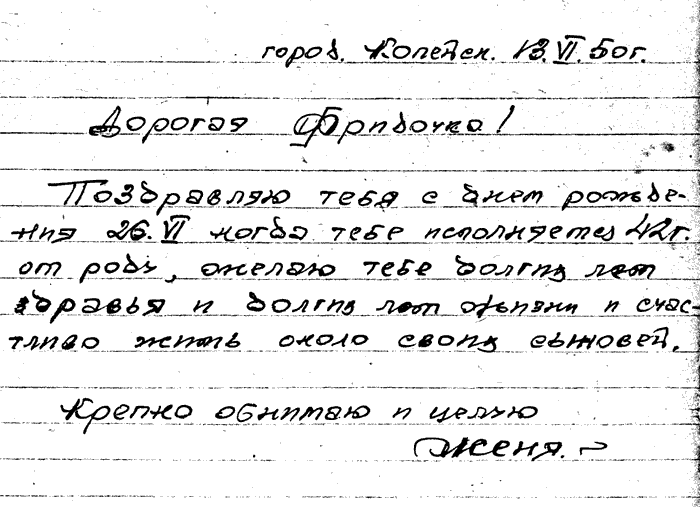 город. Копейск. 13.VI.50г.
Дорогая Фридочка!
Поздравляю тебя с днем рожде-
ния 26.VI когда тебе исполняется 42г.
от роду, желаю тебе долгих лет
здравья и долгих лет жизни и счас-
тливо жить около своих сыновей.
Крепко обнимаю и целую
Женя.